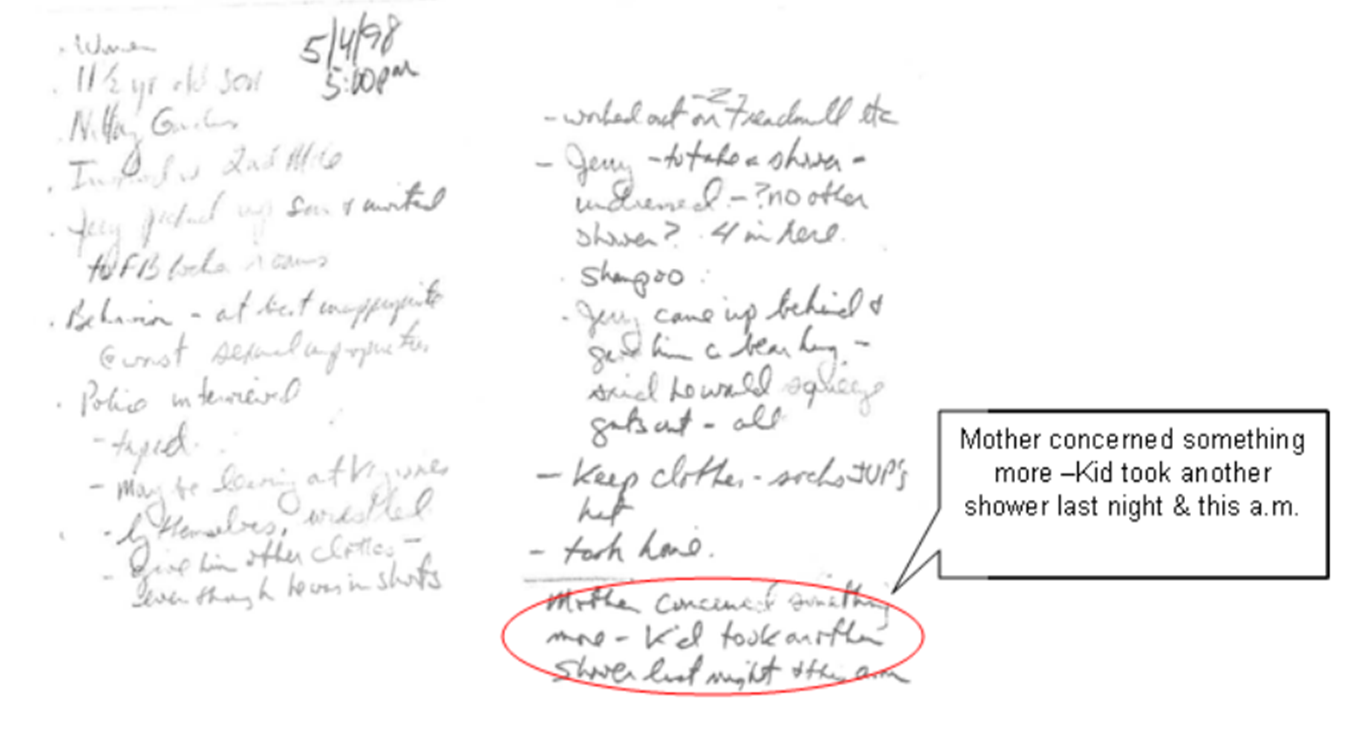 5/4/98
5:00pm
. Woman
. 11 1/2 yr old son
. Nittany Gardens
. Involved w 2nd Mile
. Jerry picked up son & invited
to FB locker rooms
. Behavior - at best inappropriate
@ worst sexual improprieties
. Police interviewed
- taped.
- may be
- by themselves, wrestled
- Give him other clothes -
even though he was in shorts
- worked out on Treadmill etc
- Jerry - to take a shower -
undressed - ? no other
shower? 4 in here.
. Shampoo
. Jerry came up behind &
gave him a bear hug -
said he would squeeze
guts out - all
- Keep clothes - socks
hat
- took home.
Mother concerned something
more - Kid took another
shower last night & this a.m
Mother concerned something
more –Kid took another
shower last night & this a.m.